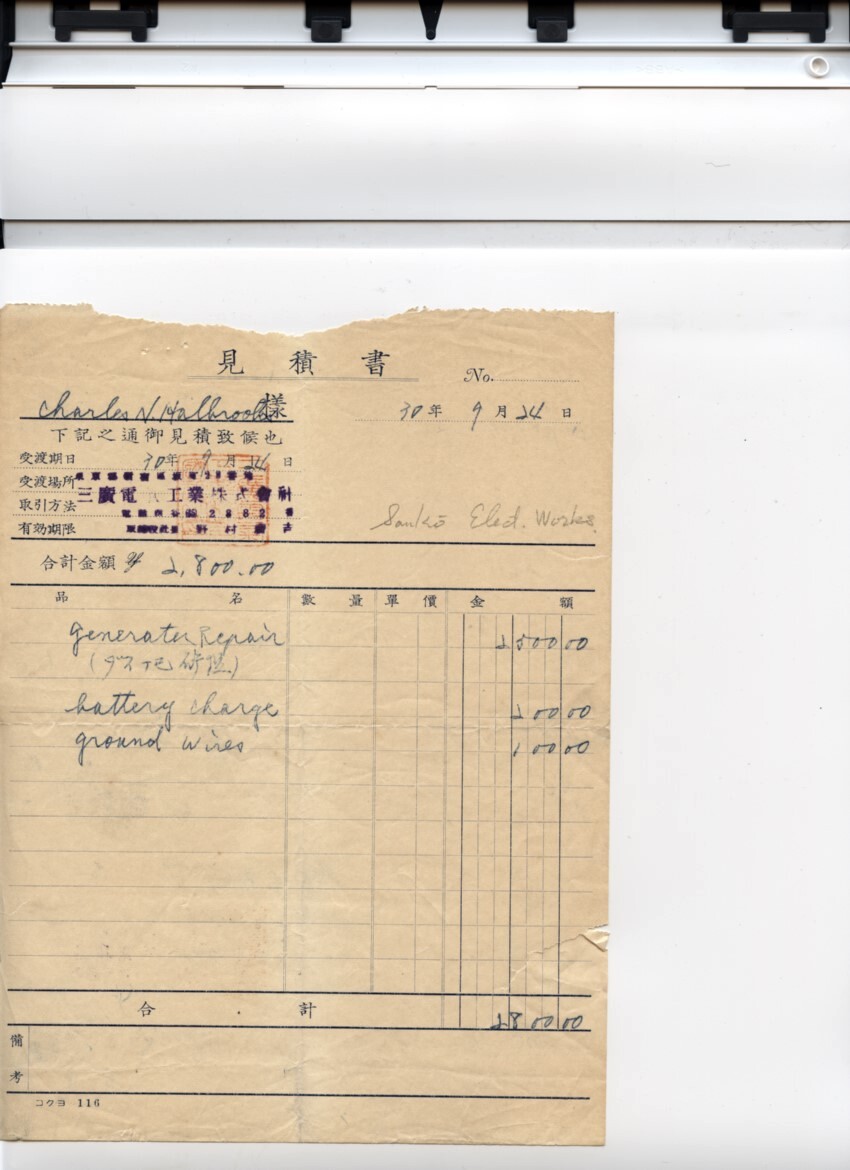 見積書
No.
Charles N. Halbrooks 様
30年 9月 24日
下記之通御見積致候也
受渡期日 30年 9月 24日
受渡場所
三廣電 工業株式會社
取引方法
有効期限
Sankō Elect. Works.
合計金額 ¥ 2,800.00
品名 数量 單價 金額
generater Repair 2500 00
battery charge 200 00
ground wires 100 00
合計 2800 00
備考
コクヨ 116